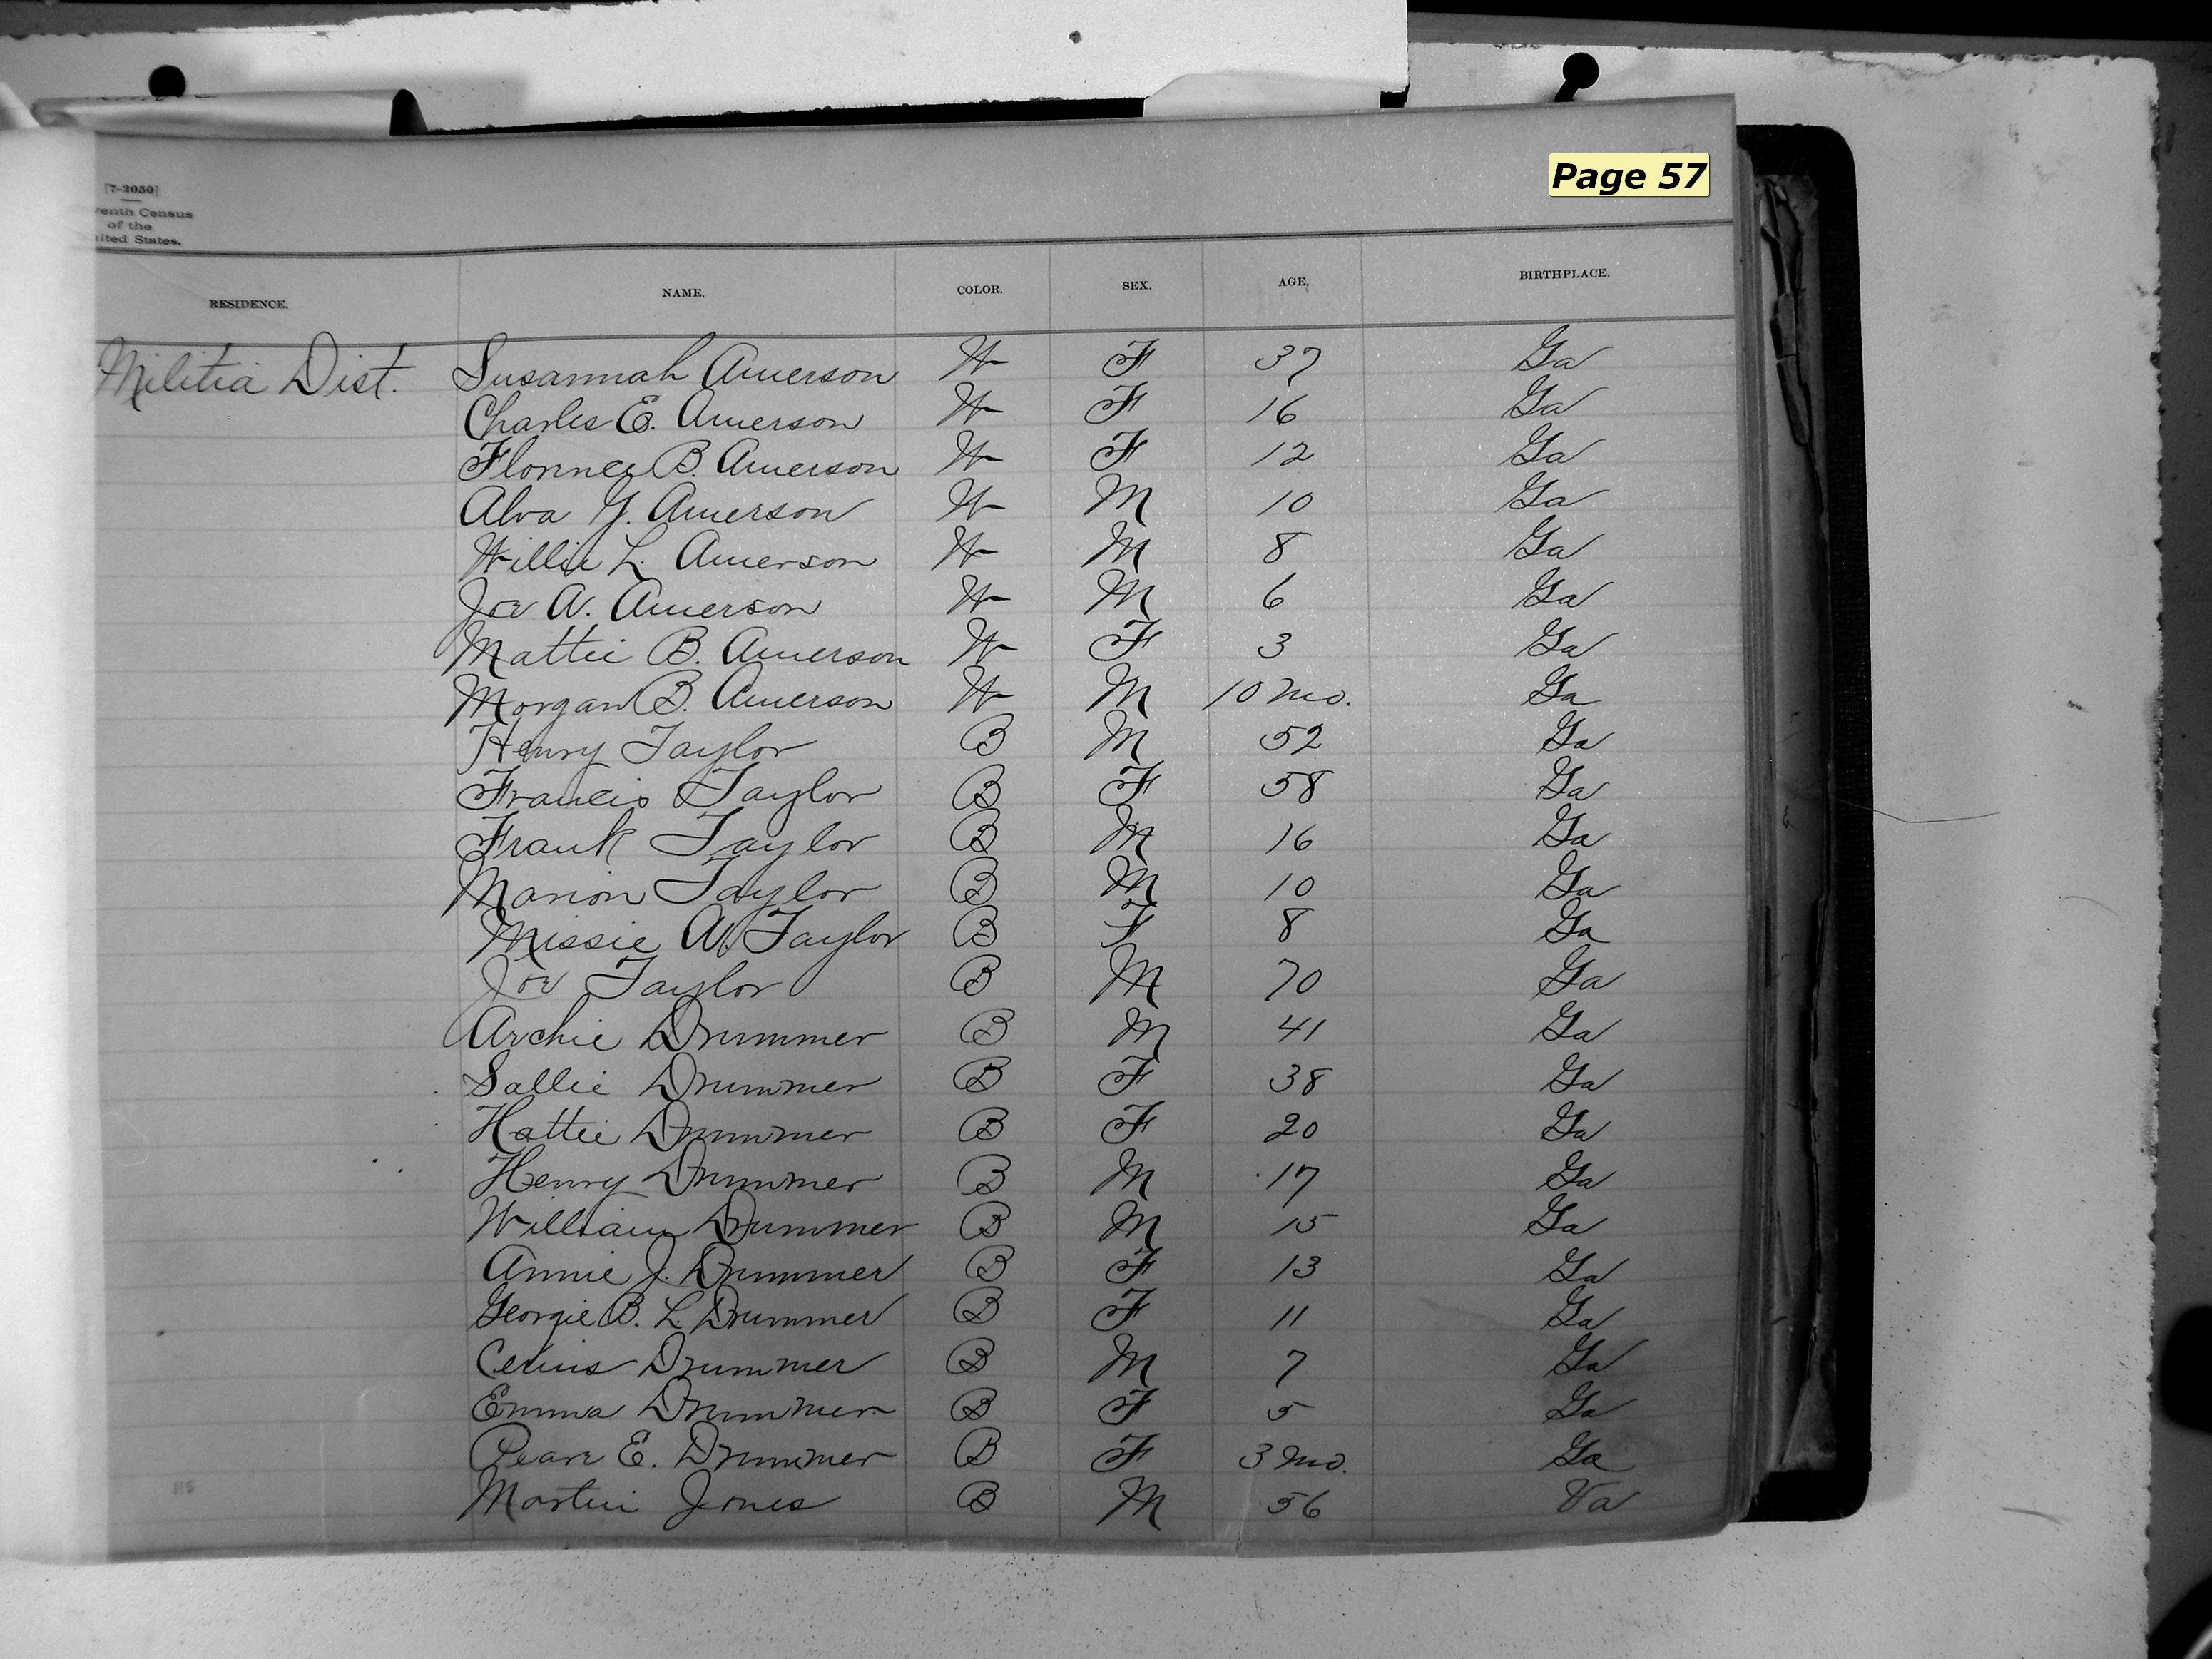 Page 57
[7-2050]
enth Census
of the
ited States.
RESIDENCE. NAME. COLOR. SEX. AGE. BIRTHPLACE.
Militia Dist. Susannah Amerson W F 37 Ga
Charles E. Amerson W F 16 Ga
Florence B. Amerson W F 12 Ga
Alva G. Amerson W M 10 Ga
Willie L. Amerson W M 8 Ga
Joe A. Amerson W M 6 Ga
Mattie B. Amerson W F 3 Ga
Morgan B. Amerson W M 10 mo. Ga
Henry Taylor B M 52 Ga
Francis Taylor B F 58 Ga
Frank Taylor B M 16 Ga
Marion Taylor B M 10 Ga
Missie A. Taylor B F 8 Ga
Joe Taylor B M 70 Ga
Archie Drummer B M 41 Ga
Sallie Drummer B F 38 Ga
Hattie Drummer B F 20 Ga
Henry Drummer B M 17 Ga
William Drummer B M 15 Ga
Annie J. Drummer B F 13 Ga
Georgie B. L. Drummer B F 11 Ga
Drummer B M 7 Ga
Emma Drummer B F 5 Ga
E. Drummer B F 3 mo. Ga
Martin Jones B M 56 Va